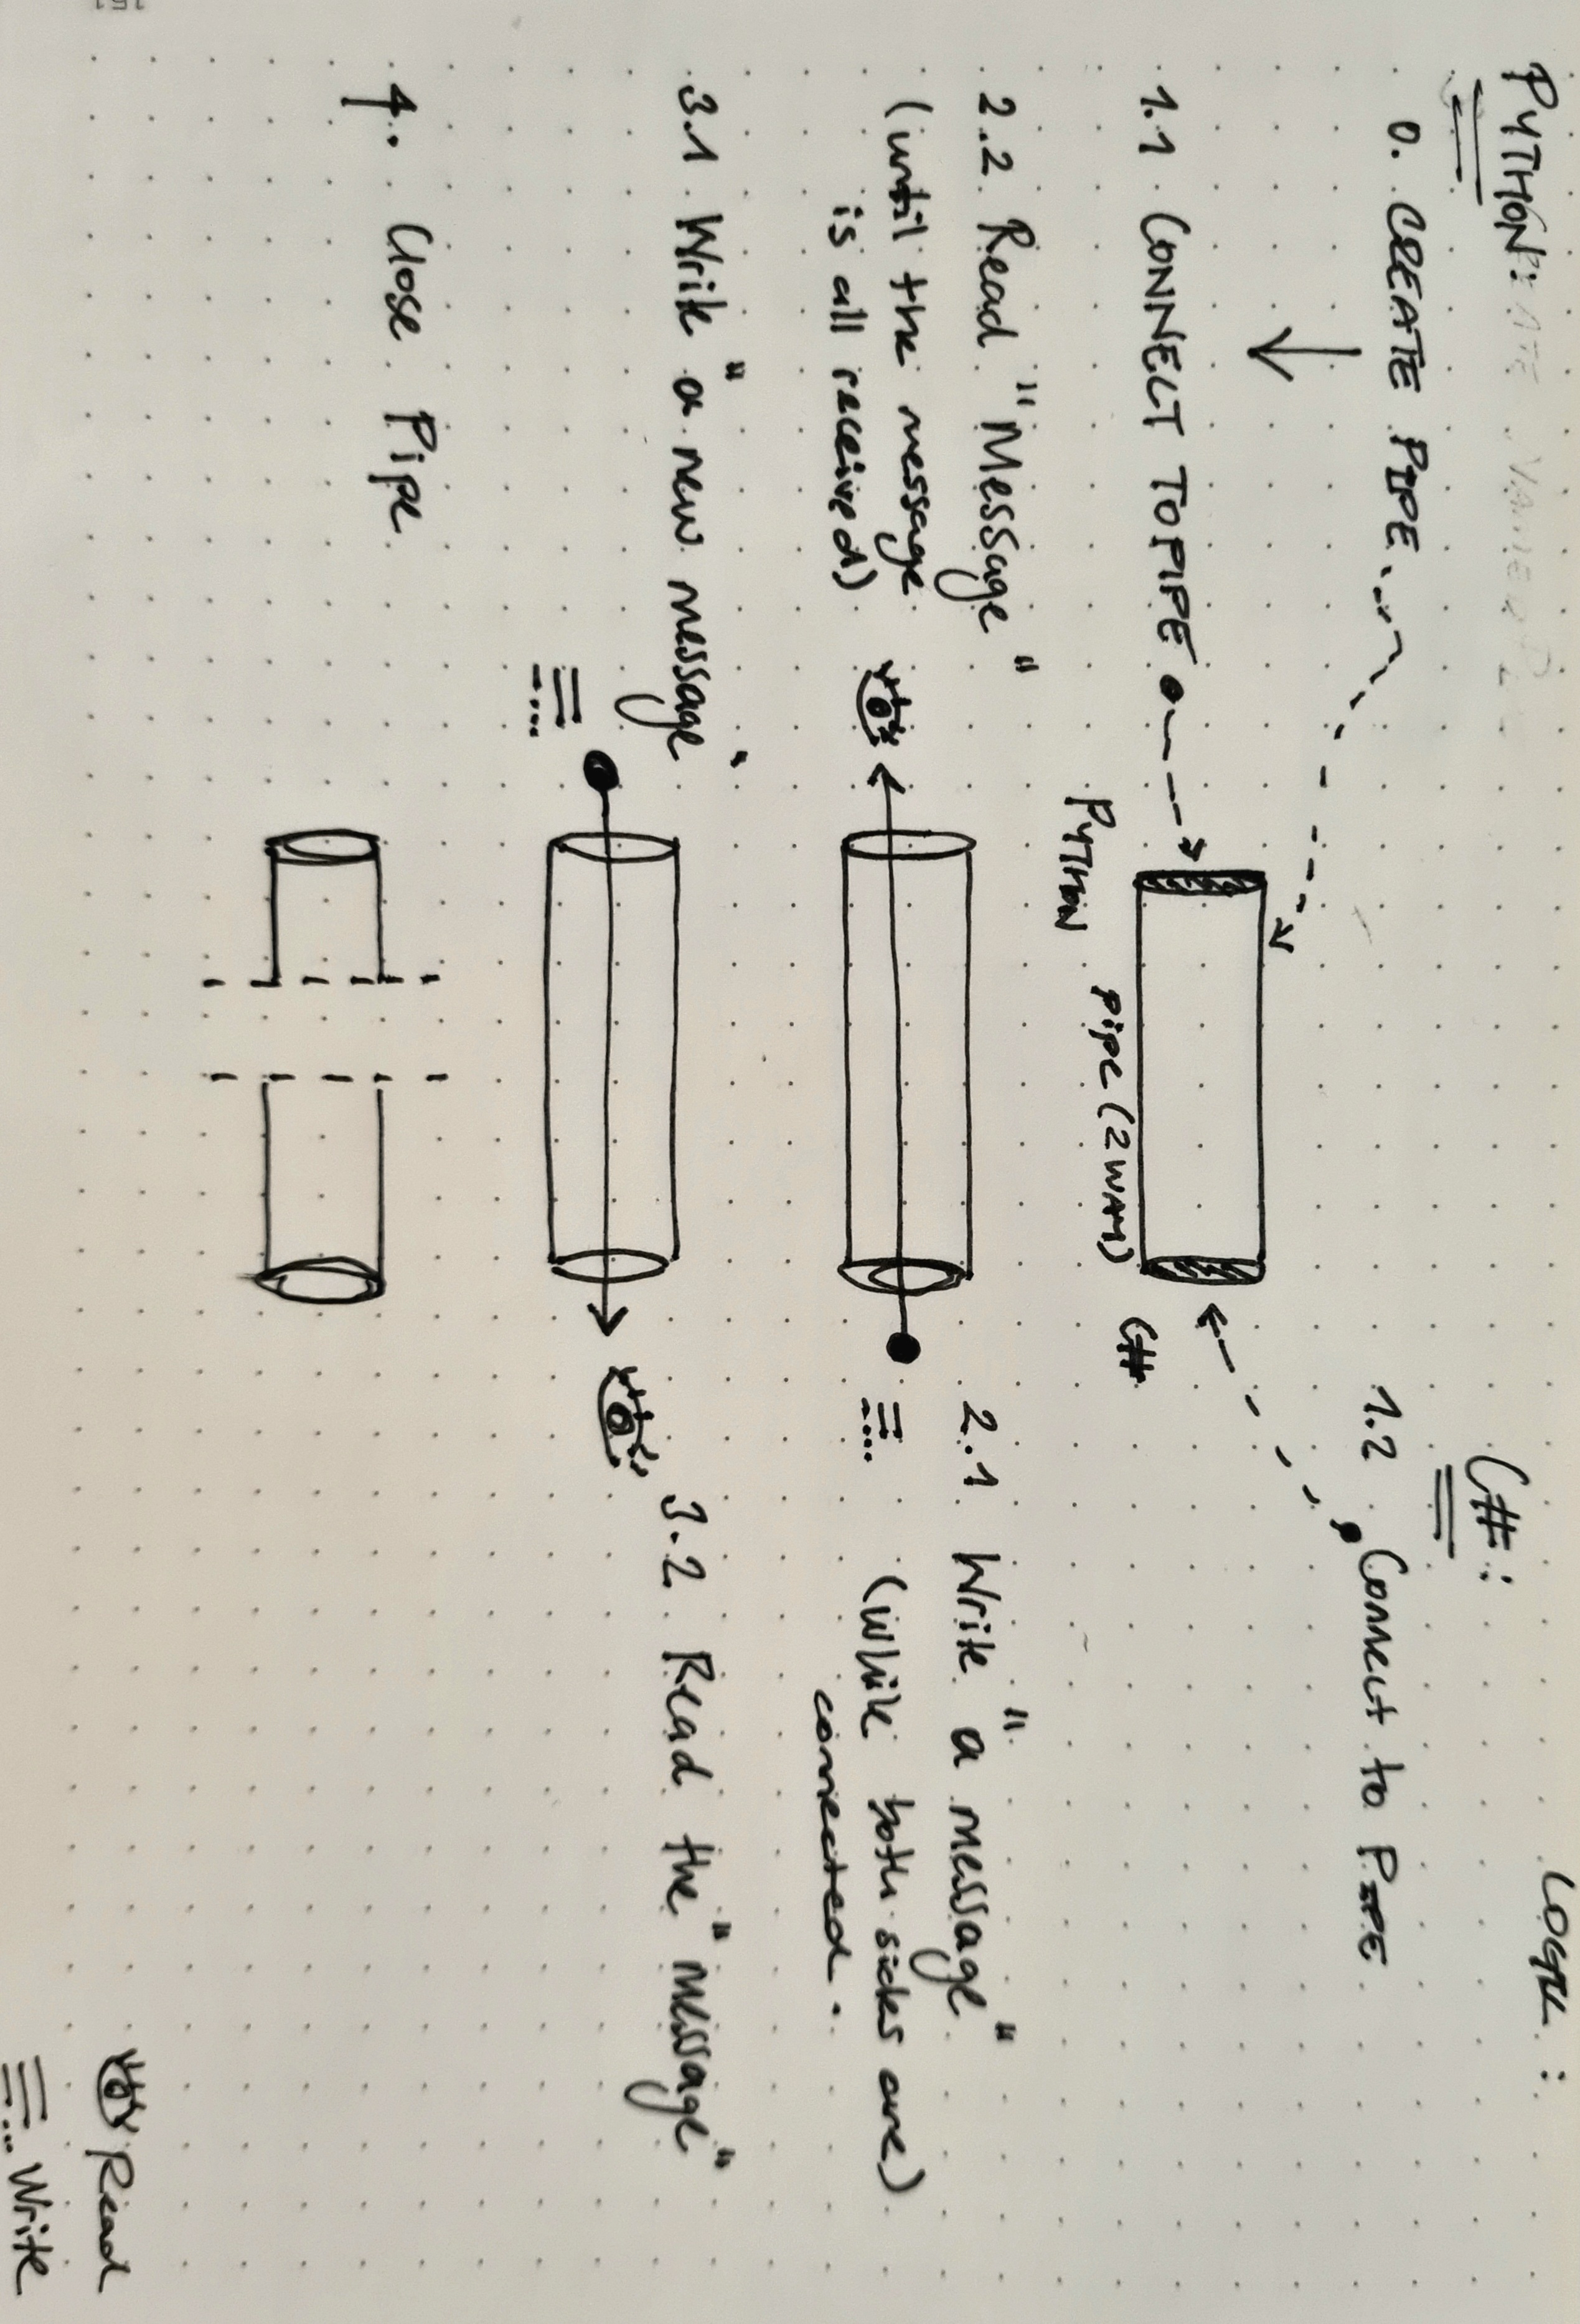 LOGIK :
PYTHON:
C# :
0. CREATE PIPE
1.2 Connect to PIPE
1.1 CONNECT TO PIPE
C#
pipe (2WAY)
PYTHON
2.2 Read "Message"
(until the message
is all received)
2.1 Write "a message"
(while both sides are)
connected.
3.1 Write "a new message"
3.2 Read the "message"
4. Close Pipe
151
Read
Write